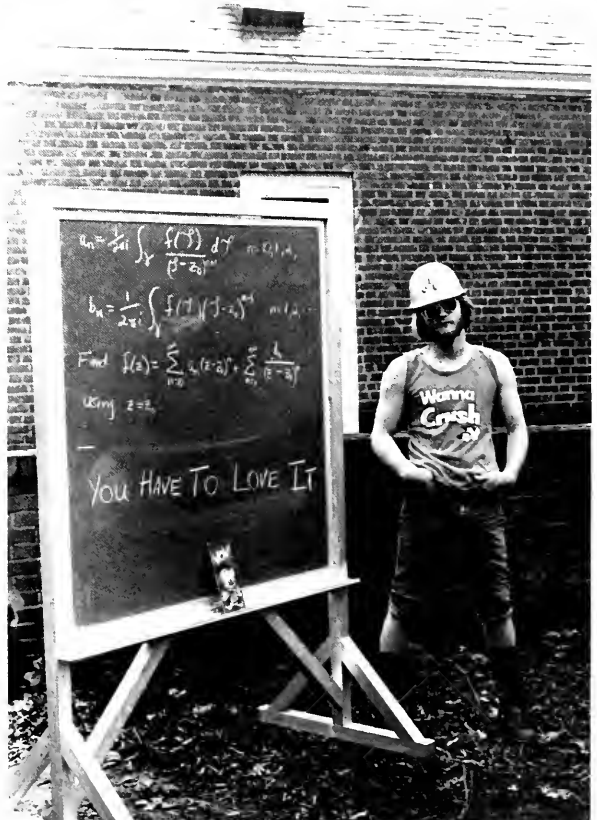 aₙ = 1/2πi ∫_γ f(ζ)/(ζ-z₀)ⁿ⁺¹ dζ n=0,1,2,
bₙ = 1/2πi ∫ f(ζ)(ζ-z₀)ⁿ⁻¹ n=1,2,...
Find f(z) = ∑ aₙ(z-z₀)ⁿ + ∑ bₙ/(z-z₀)ⁿ
using z=z₀
YOU HAVE TO LOVE IT
Wanna
Crush